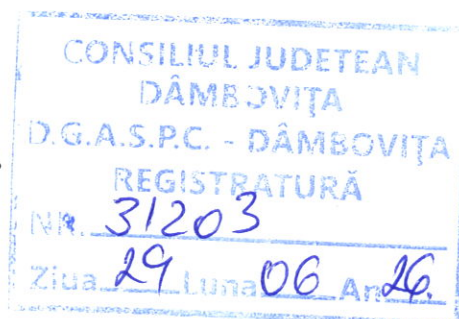 CONSILIUL JUDETEAN
DÂMBOVIŢA
D.G.A.S.P.C. - DÂMBOVIŢA
REGISTRATURĂ
NR. 31203
Ziua 29 Luna 06 An 26.